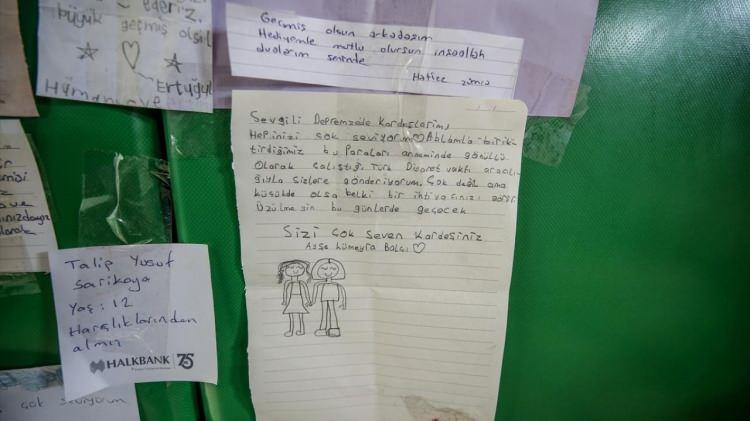 ederiz.
büyük geçmiş olsu
Ertuğrul
Geçmiş olsun arkadaşım
Hediyemle mutlu olursun inşaallah
dualarım seninle
Hatice
Sevgili Depremzede Kardeşlerim,
Hepinizi çok seviyorum♡Ablamla birik
tirdiğimiz bu Paraları annemin de gönüllü
Olarak çalıştığı Türk Diyanet vakfı aracılı
ğıyla sizlere gönderiyorum. Çok değil ama
küçükde olsa belki bir ihtiyacınızı görür
Üzülmeyin bu günlerde geçecek
Sizi Çok Seven Kardeşiniz
Ayşe hümeyra Balcı♡
Talip Yusuf
Sarıkaya
Yaş: 12
Harçlıklarından
alınmı
HALKBANK 75
çok seviyorum